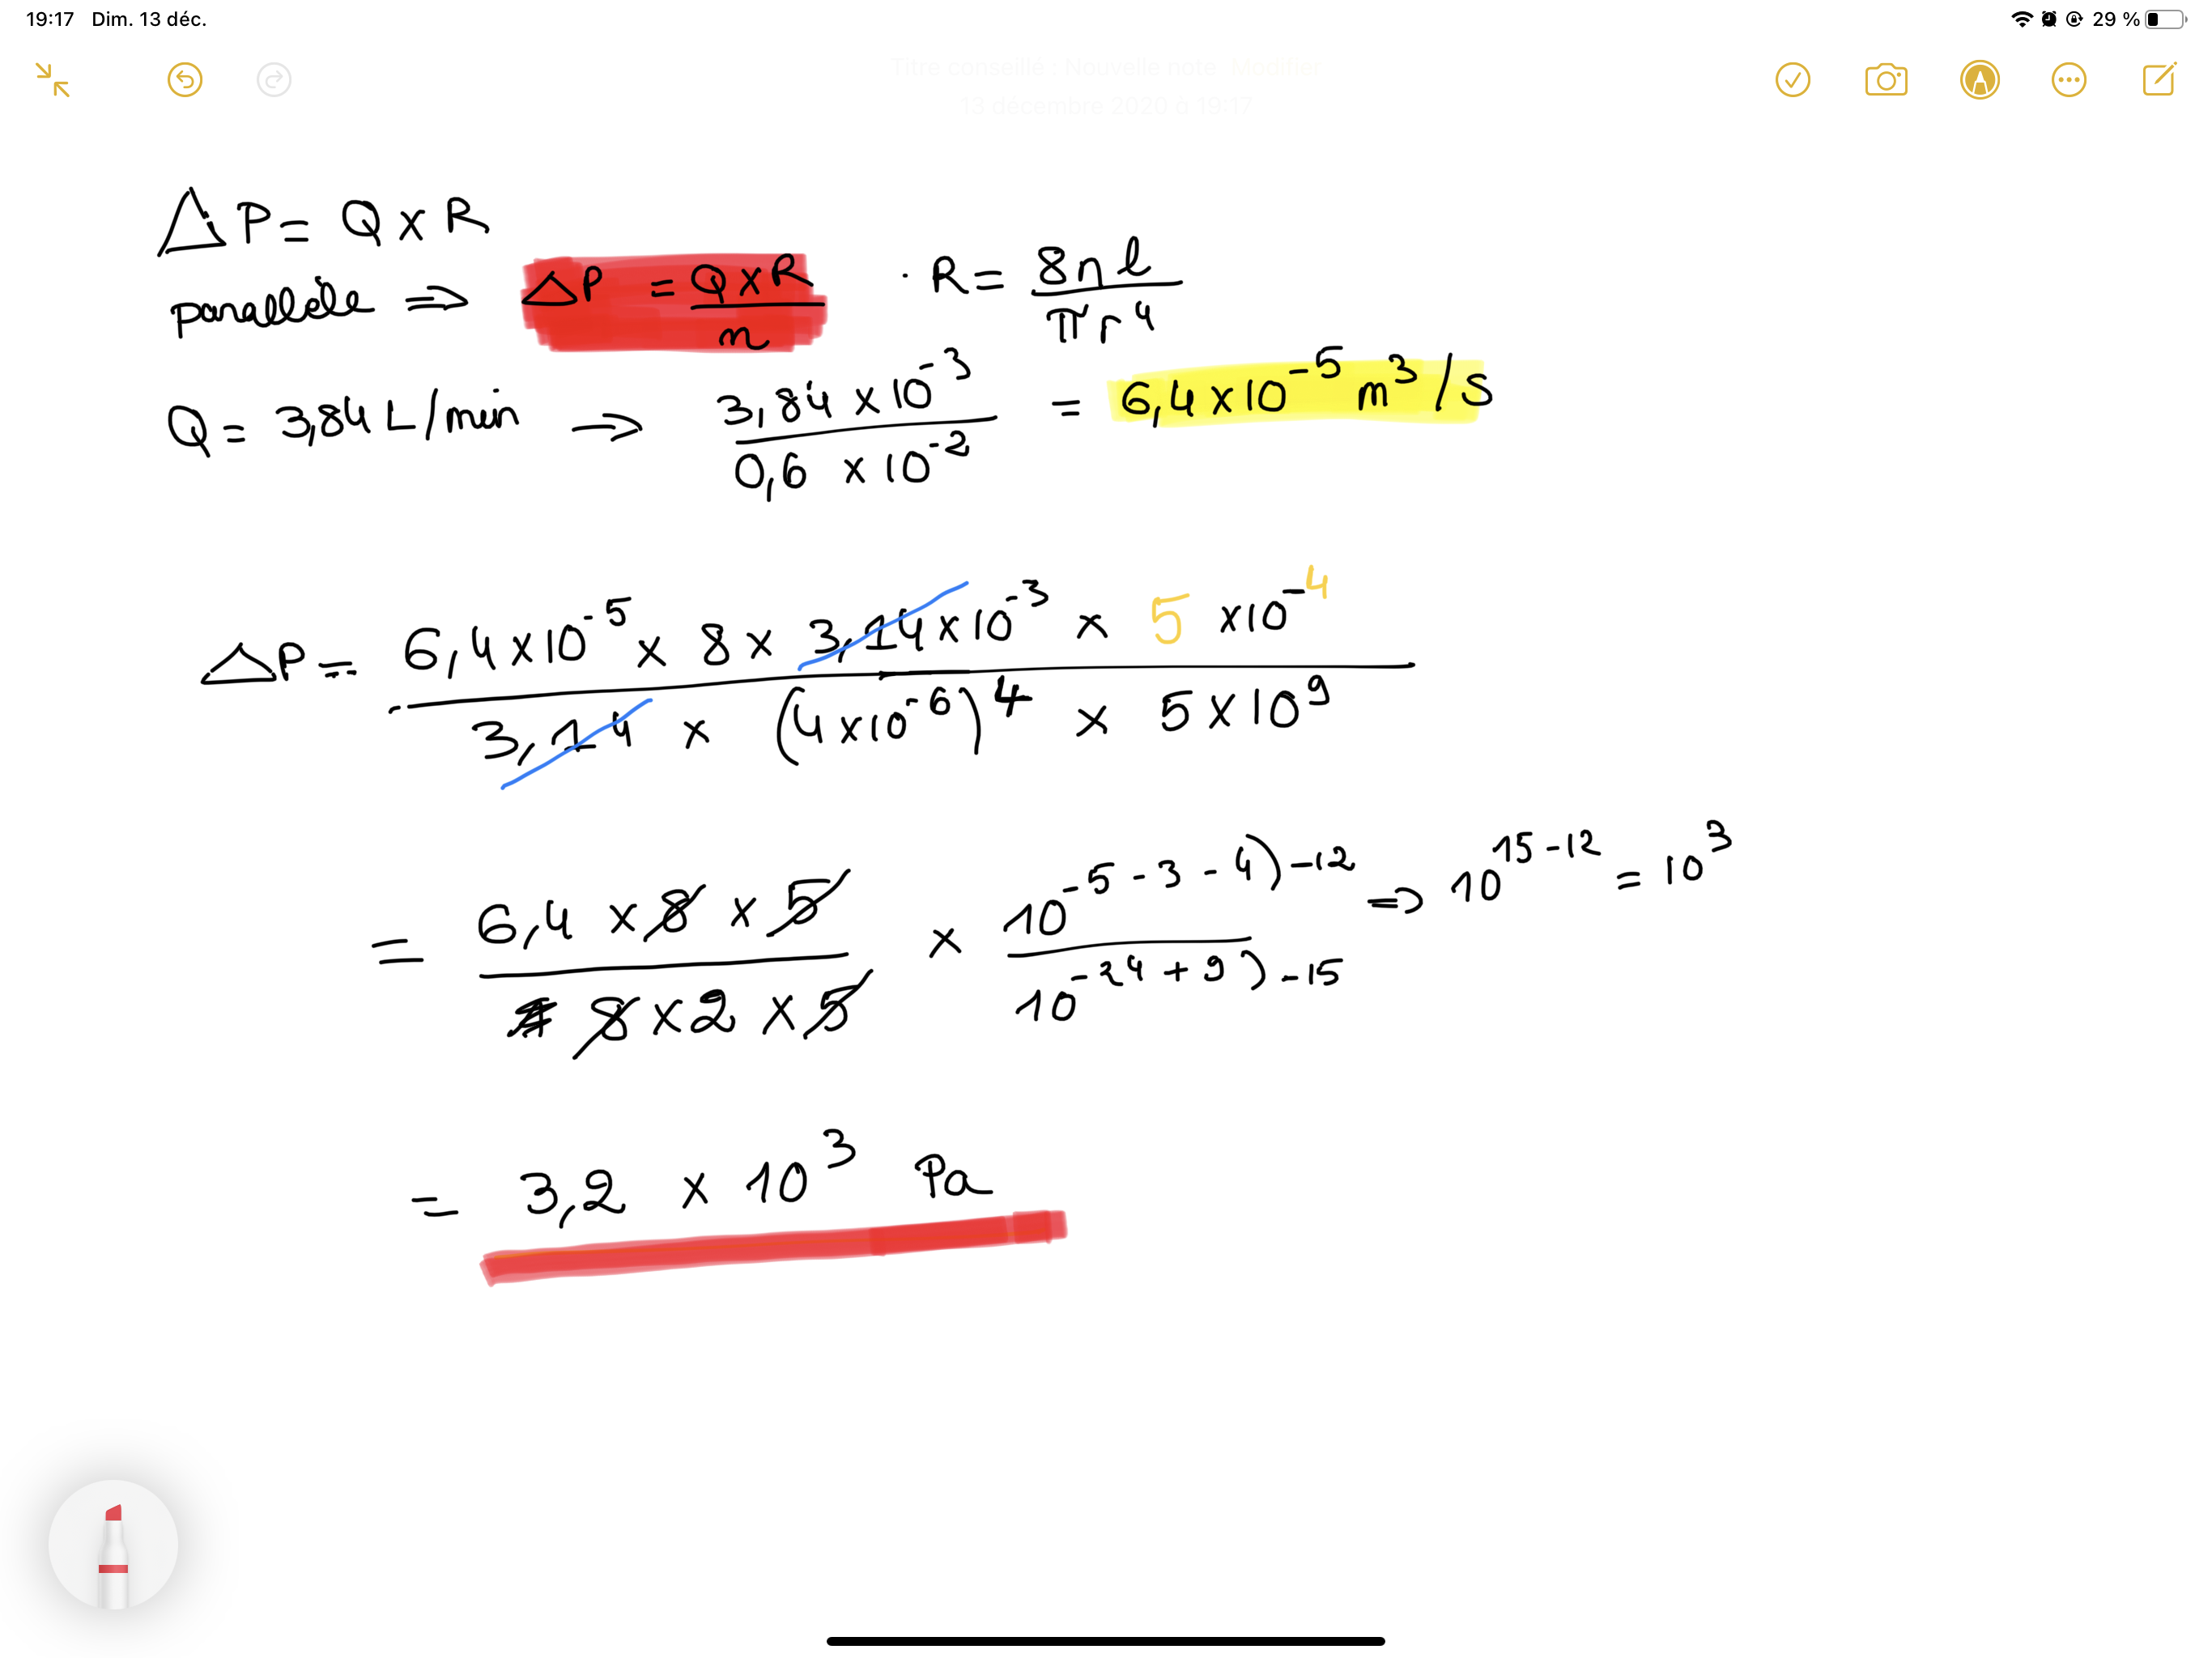 19:17 Dim. 13 déc.
29 %
Titre conseillé : Nouvelle note Modifier
13 décembre 2020 à 19:17
ΔP = Q x R
parallèle ⇒ ΔP = Q x R / n · R = 8 η l / π r⁴
Q = 3,84 L/min → 3,84 x 10⁻³ / 0,6 x 10⁻² = 6,4 x 10⁻⁵ m³/s
ΔP = 6,4 x 10⁻⁵ x 8 x 3,14 x 10⁻³ x 5 x 10⁻⁴ / 3,14 x (4 x 10⁻⁶)⁴ x 5 x 10⁹
= 6,4 x 8 x 5 / 8 x 2 x 5 x 10^(-5-3-4) -12 / 10^(-24+9) -15 ⇒ 10^(15-12) = 10³
= 3,2 x 10³ Pa